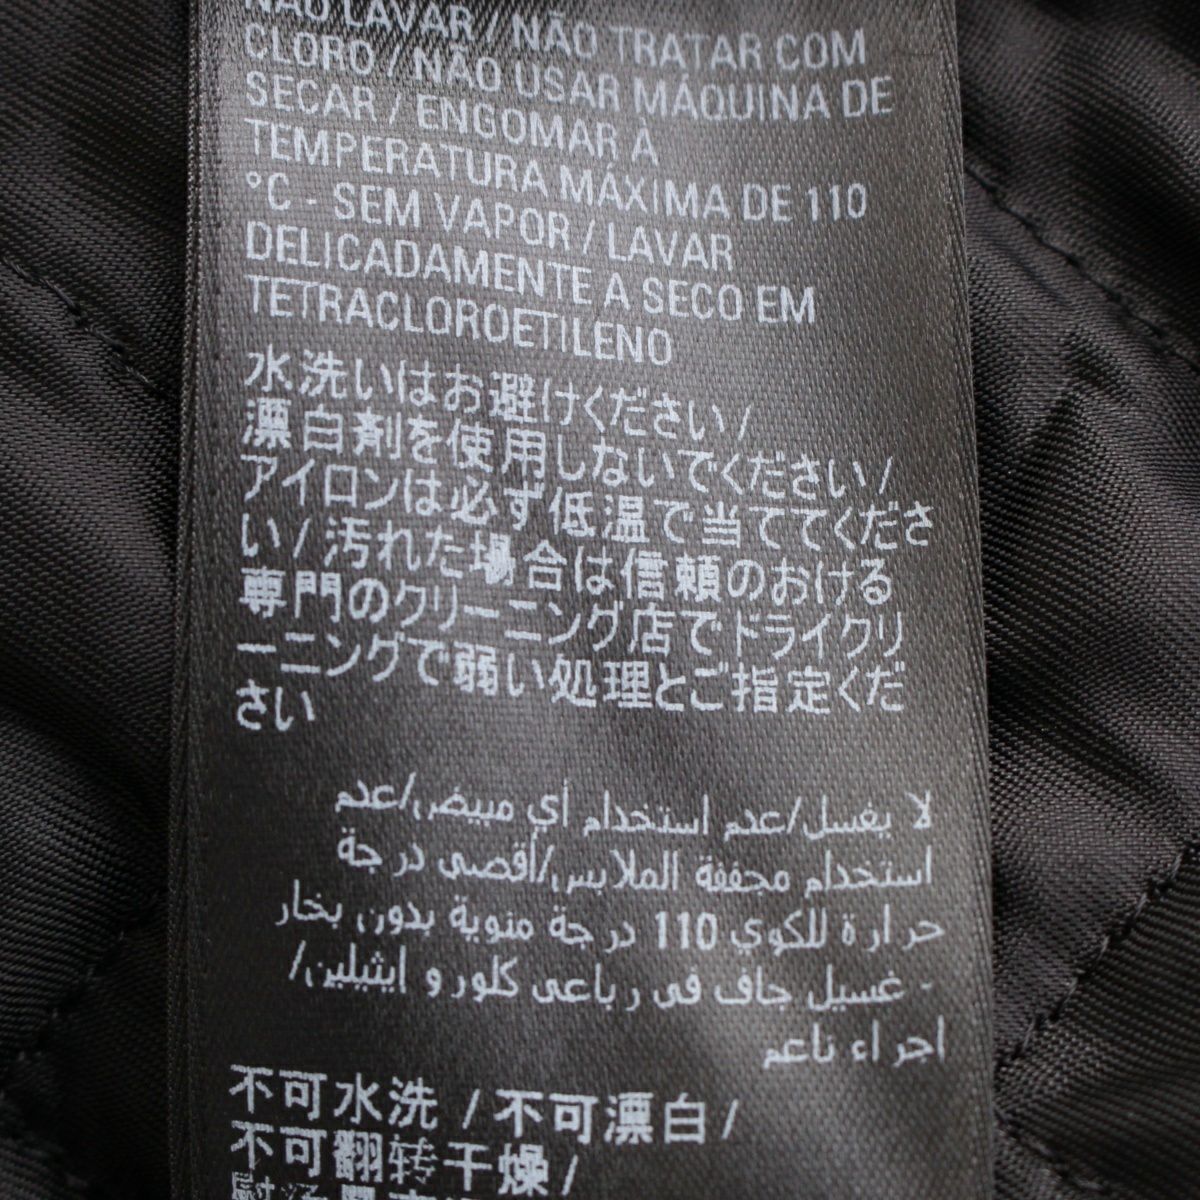 NÃO LAVAR / NÃO TRATAR COM
CLORO / NÃO USAR MÁQUINA DE
SECAR / ENGOMAR À
TEMPERATURA MÁXIMA DE 110
°C - SEM VAPOR / LAVAR
DELICADAMENTE A SECO EM
TETRACLOROETILENO
水洗いはお避けください/
漂白剤を使用しないでください/
アイロンは必ず低温で当ててくださ
い/ 汚れた場合は信頼のおける
専門のクリーニング店でドライクリ
ーニングで弱い処理とご指定くだ
さい
لا يغسل/عدم استخدام أي مبيض/عدم
استخدام مجففة الملابس/أقصى درجة
حرارة للكوي 110 درجة مئوية بدون بخار
- غسيل جاف في رباعي كلورو ايثيلين/
اجراء ناعم
不可水洗 / 不可漂白 /
不可翻转干燥 /